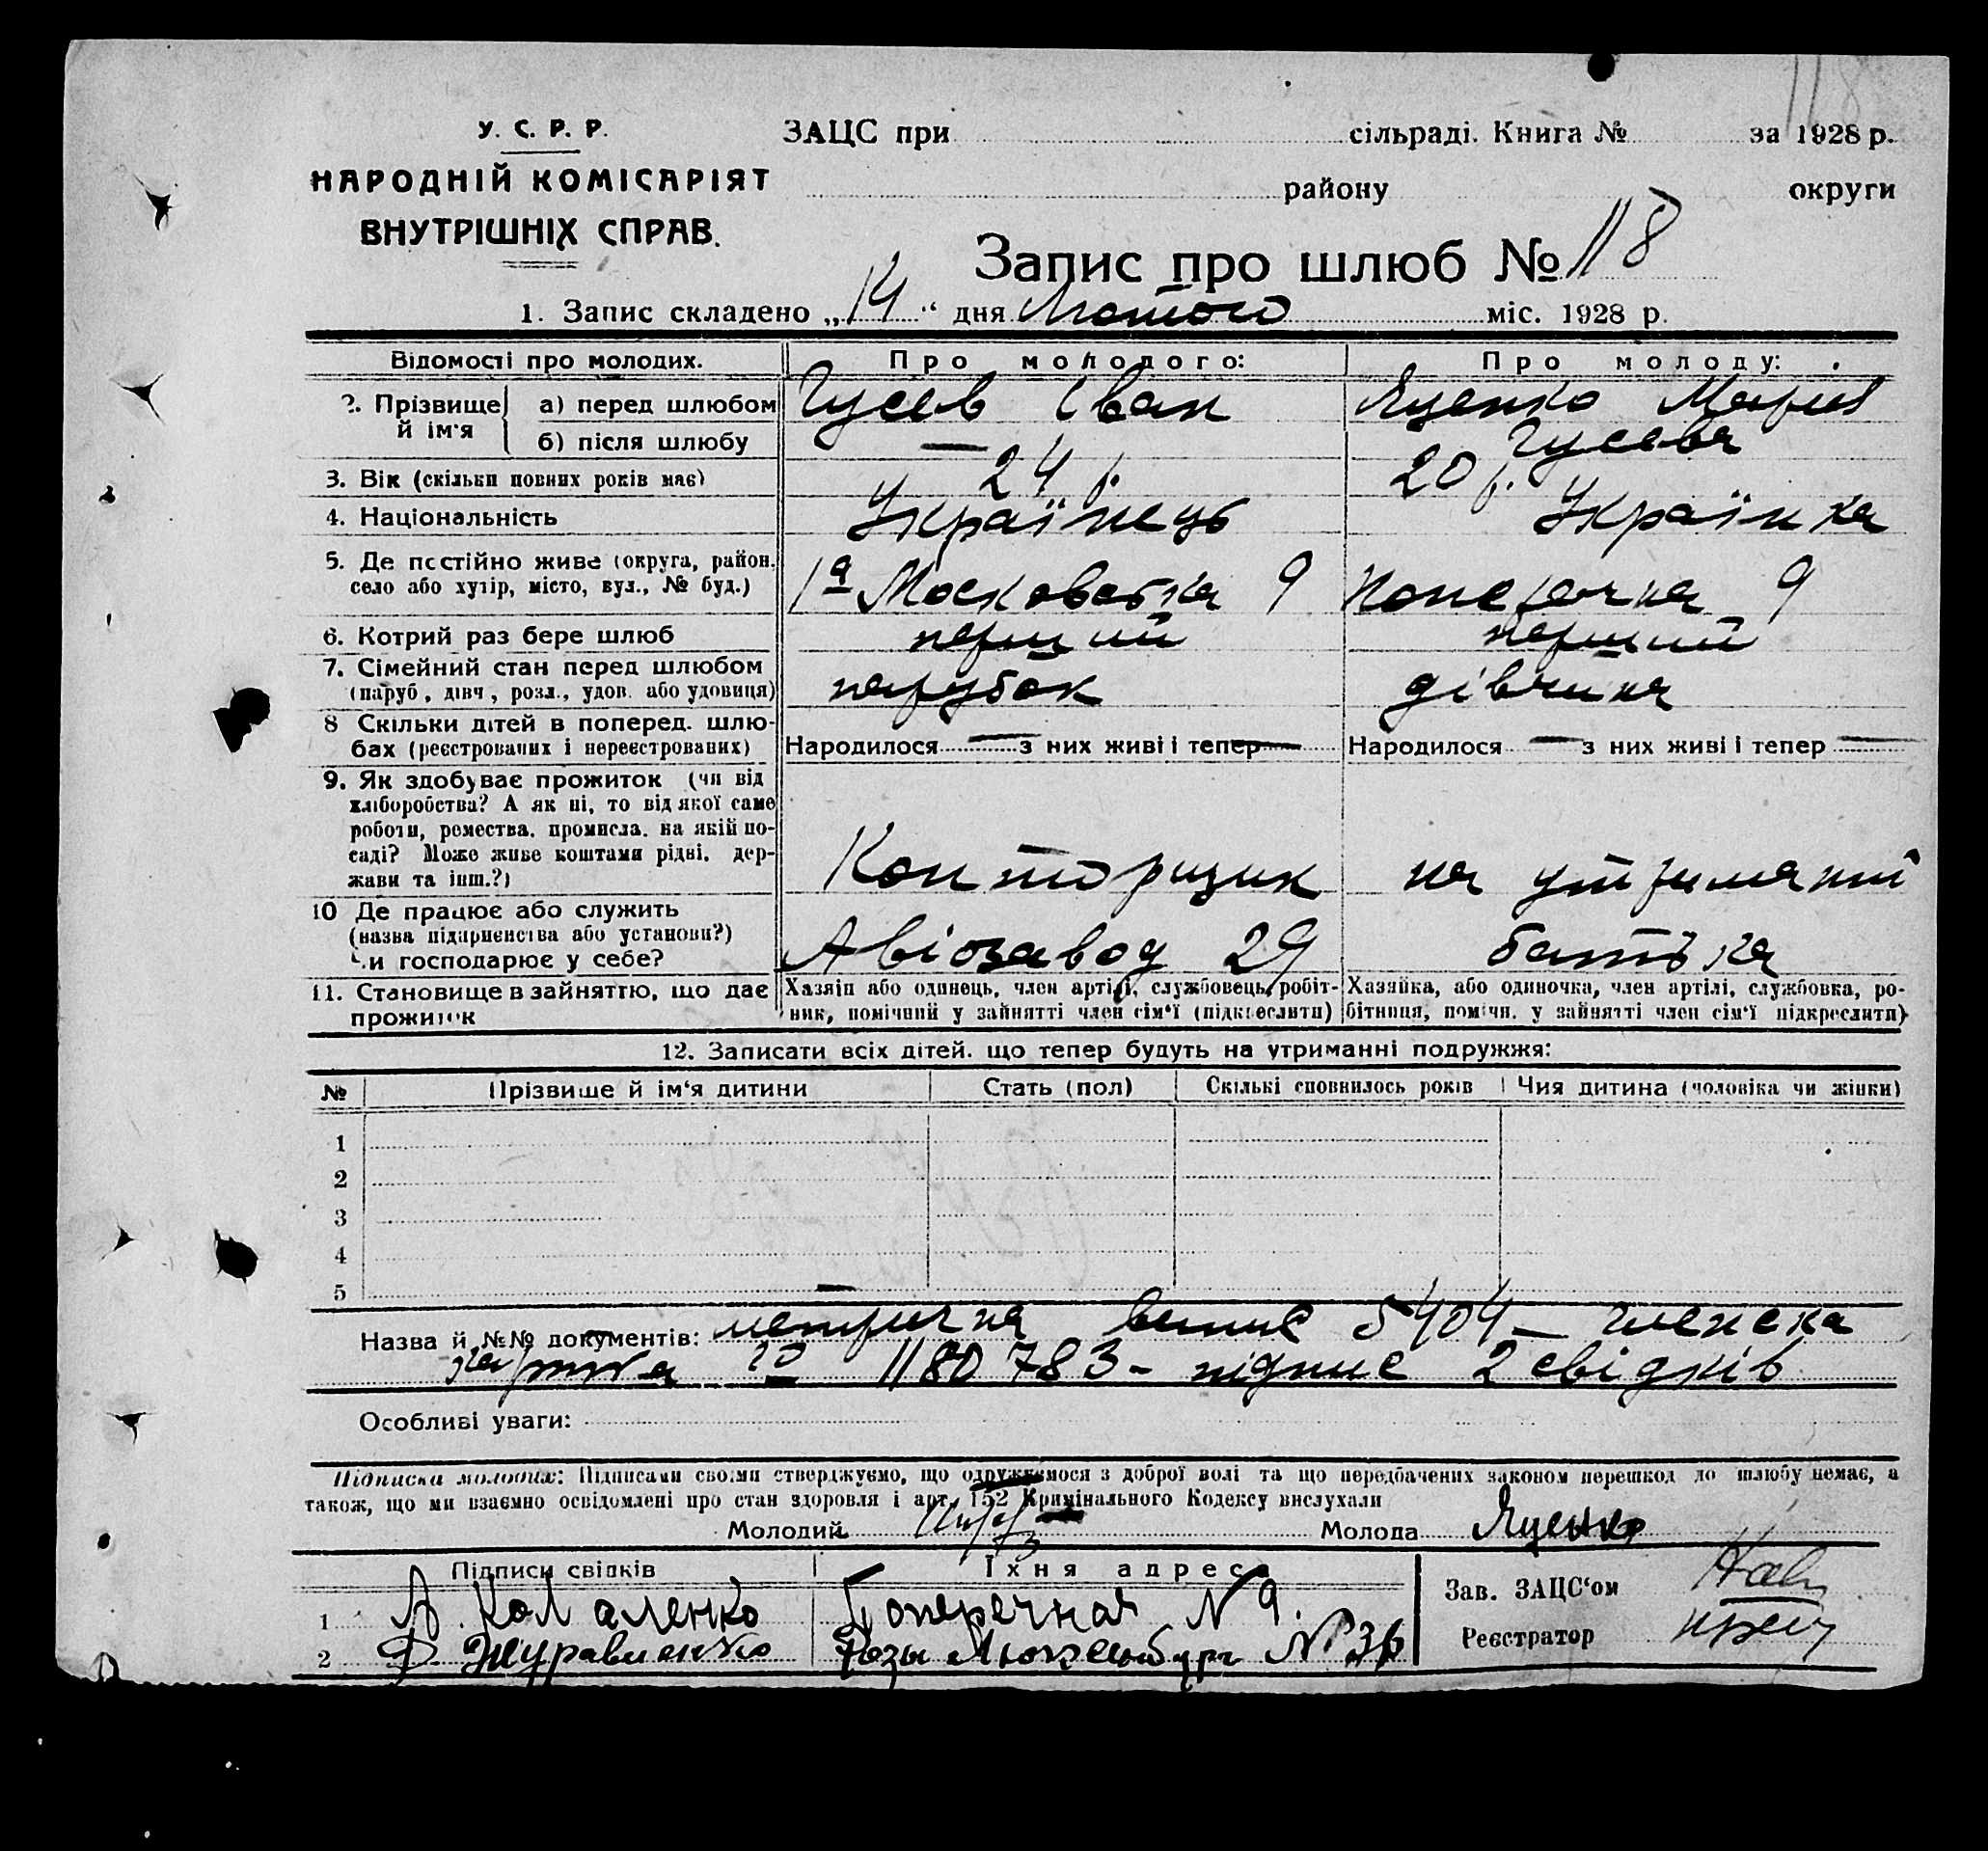 118
У. С. Р. Р.
НАРОДНІЙ КОМІСАРІЯТ
ВНУТРІШНІХ СПРАВ.
ЗАЦС при сільраді. Книга № за 1928 р.
району округи
Запис про шлюб № 118
1. Запис складено „14“ дня Лютого міс. 1928 р.
Відомості про молодих. Про молодого: Про молоду:
2. Прізвище й ім'я а) перед шлюбом Гусев Іван Яценко Мария
б) після шлюбу — Гусева
3. Вік (скільки повних років має) 24 р. 20 р.
4. Національність Українець Українка
5. Де постійно живе (округа, район, село або хутір, місто, вул., № буд.) 1а Московська 9 Поперечна 9
6. Котрий раз бере шлюб перший перший
7. Сімейний стан перед шлюбом (паруб., дівч., розл., удов. або удовиця) парубок дівчина
8 Скільки дітей в поперед. шлюбах (реєстрованих і нереєстрованих) Народилося — з них живі і тепер — Народилося — з них живі і тепер —
9. Як здобуває прожиток (чи від
хліборобства? А як ні, то від якої саме
роботи, ремества, промисла, на якій по-
саді? Може живе коштами рідні, дер-
жави та інш.?) Конторщик на утриманні
10 Де працює або служить
(назва підприємства або установи?)
Чи господарює у себе? Авіозавод 29 батька
11. Становище в зайняттю, що дає прожиток
Хазяїн або одинець, член артілі, службовець, робіт-
ник, помічний у зайнятті член сім'ї (підкреслити)
Хазяйка, або одиночка, член артілі, службовка, ро-
бітниця, помічн. у зайнятті член сім'ї підкреслити)
12. Записати всіх дітей, що тепер будуть на утриманні подружжя:
№ Прізвище й ім'я дитини Стать (пол) Скількі сповнилось років Чия дитина (чоловіка чи жінки)
1
2
3
4
5 —
Назва й №№ документів: метрична випис 5404 — членска
картка № 1180783 - підпис 2 свідків
Особливі уваги:
Підписка молодих: Підписами своїми стверджуємо, що одружуємося з доброї волі та що передбачених законом перешкод до шлюбу немає, а
також, що ми взаємно освідомлені про стан здоровля і арт. 152 Кримінального Кодексу вислухали
Молодий Молода Яценко
Підписи свідків Їхня адреса
1 А. Коваленко Поперечная N 9.
2 Ф. Журавленко Розы Люксенбург № 36
Зав. ЗАЦС'ом
Реєстратор